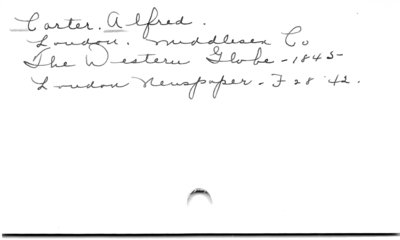 Carter. Alfred.
London. Middlesex Co
The Western Globe - 1845
London Newspaper - F 28 '42.